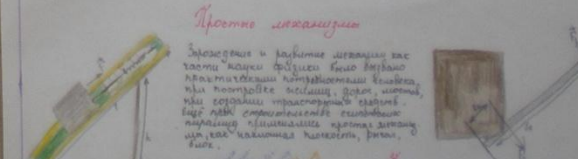 Простые механизмы
Зарождение и развитие механики как
части науки физики было вызвано
практическими потребностями человека,
при постройке жилищ, дорог, мостов,
при создании транспортных средств.
Ещё при строительстве
пирамид применялись простые механиз
мы, как наклонная плоскость, рычаг,
блок.